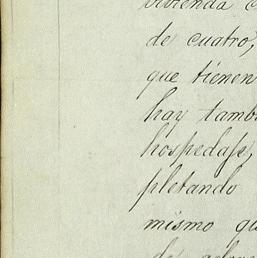 vivienda
de cuatro,
que tienen
hay tamb
hospedaje,
pletando
mismo qu
de